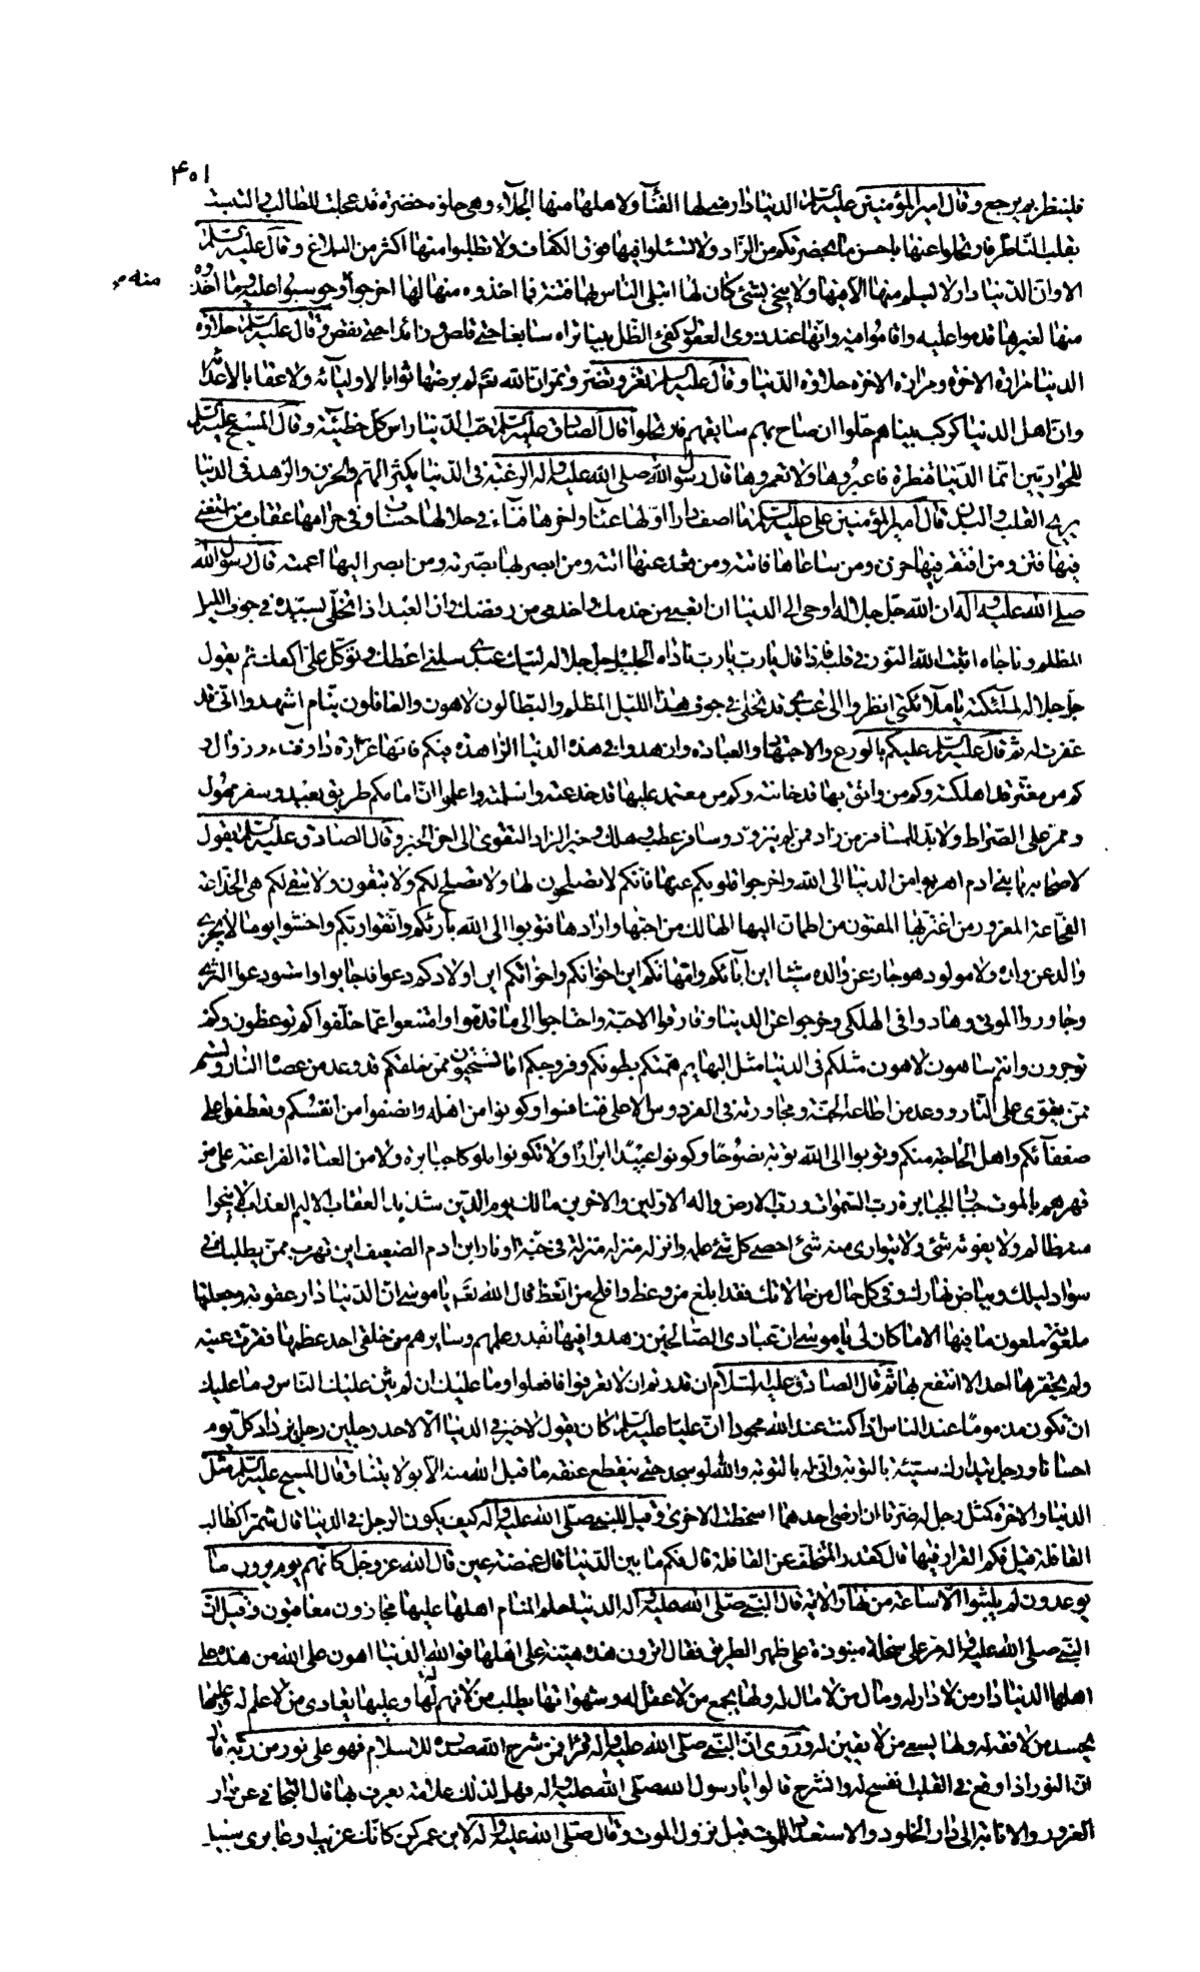 ۴۰۱
فلينظر بم يرجع وقال امير المؤمنين عليه السلم الدنيا دار منى لها الفناء ولاهلها منها الجلاء وهى حلوة خضرة قد عجلت للطالب والتبست
بقلب الناظر فارتحلوا عنها باحسن ما بحضرتكم من الزاد ولا تسئلوا فيها فوق الكفاف ولا تطلبوا منها اكثر من البلاغ وقال عليه السلم
الا وان الدنيا دار لا يسلم منها الا فيها ولا ينجى بشئ كان لها ابتلى الناس بها فتنة فما اخذوه منها لها اخرجوا منه وحوسبوا عليه وما اخذوه
منه
منها لغيرها قدموا عليه واقاموا فيه وانها عند ذوى العقول كفئ الظل بينا تراه سابغا حتى قلص وزائدا حتى نقص وقال عليه السلم حلاوة
الدنيا مرارة الاخرة ومرارة الاخرة حلاوة الدنيا وقال عليه السلم تغر وتضر وتمر ان الله تعم لم يرضها ثوابا لاوليائه ولا عقابا لاعدائه
وان اهل الدنيا كركب بيناهم حلوا ان صاح بهم سابقهم فارتحلوا قال الصادق عليه السلم حب الدنيا راس كل خطيئة وقال المسيح عليه السلم
للحواريين انما الدنيا قنطرة فاعبروها ولا تعمروها قال رسول الله صلى الله عليه واله الرغبة فى الدنيا يكثر الهم والحزن والزهد فى الدنيا
يريح القلب والبدن قال امير المؤمنين على عليه السلم ما اصف دارا اولها عناء واخرها فناء فى حلالها حساب وفى حرامها عقاب من استغنى
فيها فتن ومن افتقر فيها حزن ومن ساعاها فاتته ومن قعد عنها اتته ومن ابصر بها بصرته ومن ابصر اليها اعمته قال رسول الله
صلى الله عليه واله ان الله جل جلاله اوحى الى الدنيا ان اتعبى من خدمك واخدمى من رفضك وان العبد اذا تخلى بسيده فى جوف الليل
المظلم وناجاه اثبت الله النور فى قلبه فاذا قال يارب يارب ناداه الجليل جل جلاله لبيك عبدى سلنى اعطك وتوكل على اكفك ثم يقول
جل جلاله لملئكته يا ملائكتى انظروا الى عبدى قد تخلى فى جوف هذا الليل المظلم والبطالون لاهون والغافلون ينام اشهدوا انى قد
غفرت له ثم قال عليه السلم عليكم بالورع والاجتهاد والعبادة وازهدوا فى هذه الدنيا الزاهدة فيكم فانها غرارة دار فناء وزوال
كم من مغتر قد اهلكته وكم من واثق بها قد خانته وكم من معتمد عليها قد خدعته واسلمته واعلموا ان امامكم طريق بعيد وسفر مهول
وممر على الصراط ولا بد للمسافر من زاد فمن لم يتزود وسافر عطب وهلك وخير الزاد التقوى الى اخر الخبر وقال الصادق عليه السلم يقول
لاصحابه يا بنى ادم اهربوا من الدنيا الى الله واخرجوا قلوبكم عنها فانكم لا تصلحون لها ولا تصلح لكم ولا تبقون ولا تبقى لكم هى الخداعة
الفجاعة المغرور من اغتر بها المفتون من اطمان اليها الهالك من احبها وارادها فتوبوا الى الله بارئكم واتقوا ربكم واخشوا يوما لا يجزى
والد عن ولده ولا مولود هو جاز عن والده شيئا اين اباؤكم وامهاتكم اين اخوانكم واخواتكم اين اولادكم دعوا فاجابوا واستودعوا الثرى
وجاوروا الموتى وصاروا فى الهلكى وخرجوا عن الدنيا وفارقوا الاحبة واحتاجوا الى ما قدموا وامتنعوا عما خلفوا كم توعظون وكم
توجرون وانتم ساهون لاهون مثلكم فى الدنيا مثل البهايم همتكم بطونكم وفروجكم اما تستحيون ممن خلقكم قد وعد من عصاه النار ولستم
ممن يقوى على النار ووعد من اطاعه الجنة ومجاورته فى الفردوس الاعلى فتنافسوا وكونوا من اهله وانصفوا من انفسكم وتعطفوا على
ضعفائكم واهل الحاجة منكم وتوبوا الى الله توبة نصوحا وكونوا عبيدا ابرارا ولا تكونوا ملوكا جبابرة ولا من العتاة الفراعنة على من
قهرهم بالموت جبار الجبابرة رب السموات ورب الارض واله الاولين والاخرين مالك يوم الدين شديد العقاب الاليم العذاب لا ينجوا
منه ظالم ولا يفوته شئ ولا يتوارى منه شئ احصى كل شئ علمه وانزله منزله منزلة فى جنة او نار ابن ادم الضعيف اين تهرب ممن يطلبك فى
سواد ليلك وبياض نهارك وفى كل حال من حالاتك فقد ابلغ من وعظ وافلح من اتعظ قال الله تعم يا موسى ان الدنيا دار عقوبة وجعلتها
ملعونة ملعون ما فيها الا ما كان لى يا موسى ان عبادى الصالحين زهدوا فيها بقدر علمهم وسايرهم من خلقى احد عظمها فقرت عينه
ولم يحقرها احد الا انتفع بها ثم قال الصادق عليه السلام ان قدرتم ان لا تعرفوا فافعلوا وما عليك ان لم يثن عليك الناس وما عليك
ان تكون مذموما عند الناس اذا كنت عند الله محمودا ان عليا عليه السلم كان يقول لا خير فى الدنيا الا لاحد رجلين رجل يزداد كل يوم
احسانا ورجل يتدارك سيئته بالتوبة وانى له بالتوبة والله لو سجد حتى ينقطع عنقه ما قبل الله منه الا بولايتنا وقال المسيح عليه السلم مثل
الدنيا والاخرة كمثل رجل له ضرتان ان ارضى احدهما اسخطت الاخرى وقيل للنبى صلى الله عليه واله كيف يكون الرجل فى الدنيا قال شمر كطالب
القافلة قيل فكم القرار فيها قال كقدر المتخلف عن القافلة قال فكم ما بين الدنيا قال غمضة عين قال الله عز وجل كانهم يوم يرون ما
يوعدون لم يلبثوا الا ساعة من نهار الاية قال النبى صلى الله عليه واله الدنيا حلم المنام اهلها عليها مجازون معاقبون وقيل ان
النبى صلى الله عليه واله مر على سخلة منبوذة على ظهر الطريق فقال اترون هذه هينة على اهلها فوالله الدنيا اهون على الله من هذه على
اهلها الدنيا دار من لا دار له ومال من لا مال له ولها يجمع من لا عقل له وشهواتها يطلب من لا فهم له وعليها يعادى من لا علم له وعليها
يحسد من لا فقه له ولها يسعى من لا يقين له وروى ان النبى صلى الله عليه واله قرء افمن شرح الله صدره للاسلام فهو على نور من ربه قال
ان النور اذا وقع فى القلب انفسح له وانشرح قالوا يا رسول الله صلى الله عليه واله فهل لذلك علامة يعرف بها قال التجافى عن دار
الغرور والانابة الى دار الخلود والاستعداد للموت قبل نزول الموت وقال صلى الله عليه واله لابن عمر كن كانك غريب او عابرى سبيل